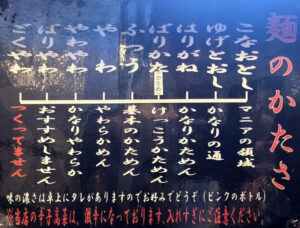 麺のかたさ
こなおとし
マニアの領域
ゆげどおし
かなりの通
はりがね
かなりかためん
ばりかた
けっこうかためん
ふつう
基本のかためん
やわ
やわらかめん
やわやわ
かなりやわらか
ばりやわ
おすすめしません
ごくやわ
つくってません
味の濃さは卓上にタレがありますのでお好みでどうぞ（ピンクのボトル）
※当店の辛子高菜は、激辛になっております。入れすぎにご注意ください。